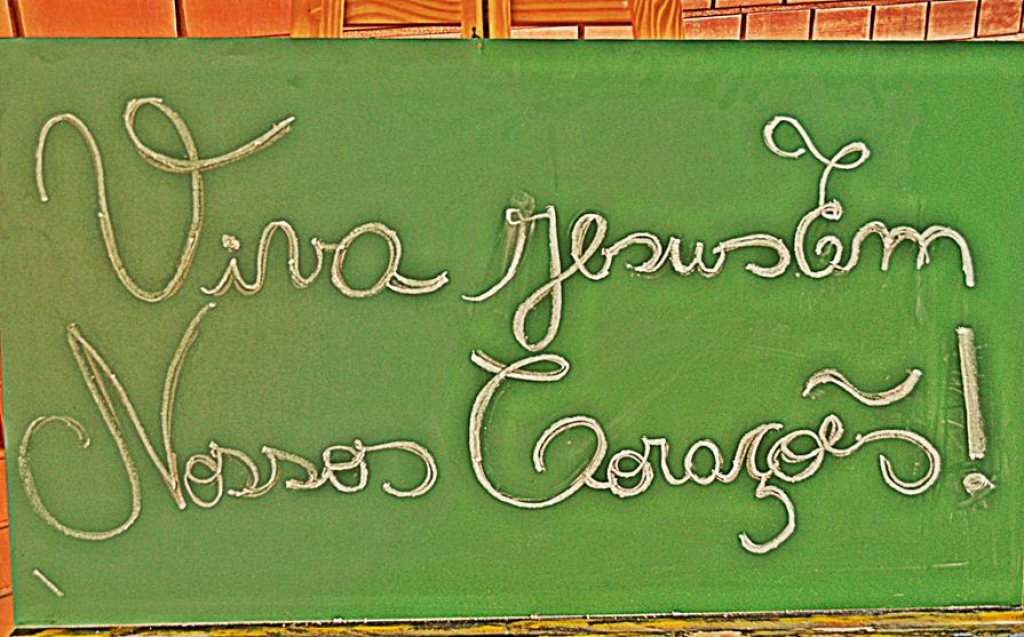 Viva Jesus Em
Nossos Corações!